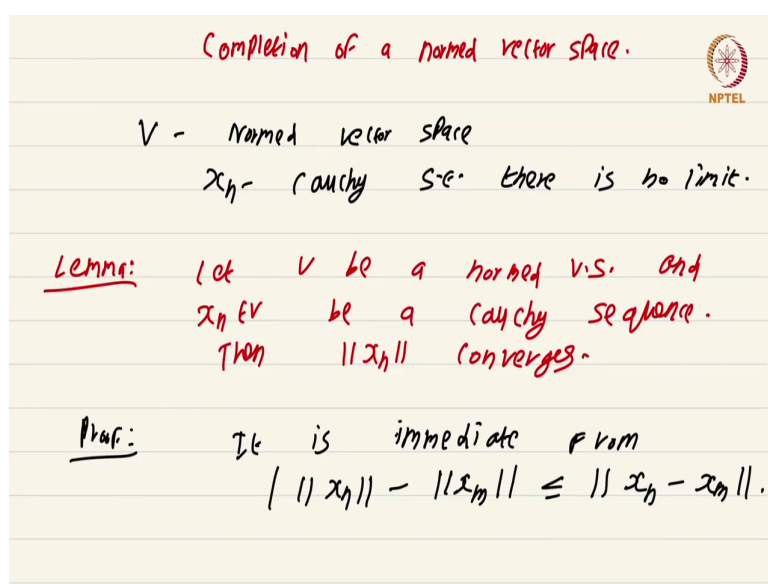 Completion of a normed vector space.
NPTEL
V - Normed vector space
xₙ - Cauchy s.t. there is no limit.
Lemma: Let V be a normed v.s. and
xₙ ∈ V be a Cauchy sequence.
Then ||xₙ|| converges.
Proof: It is immediate from
| ||xₙ|| - ||xₘ|| ≤ || xₙ - xₘ||.